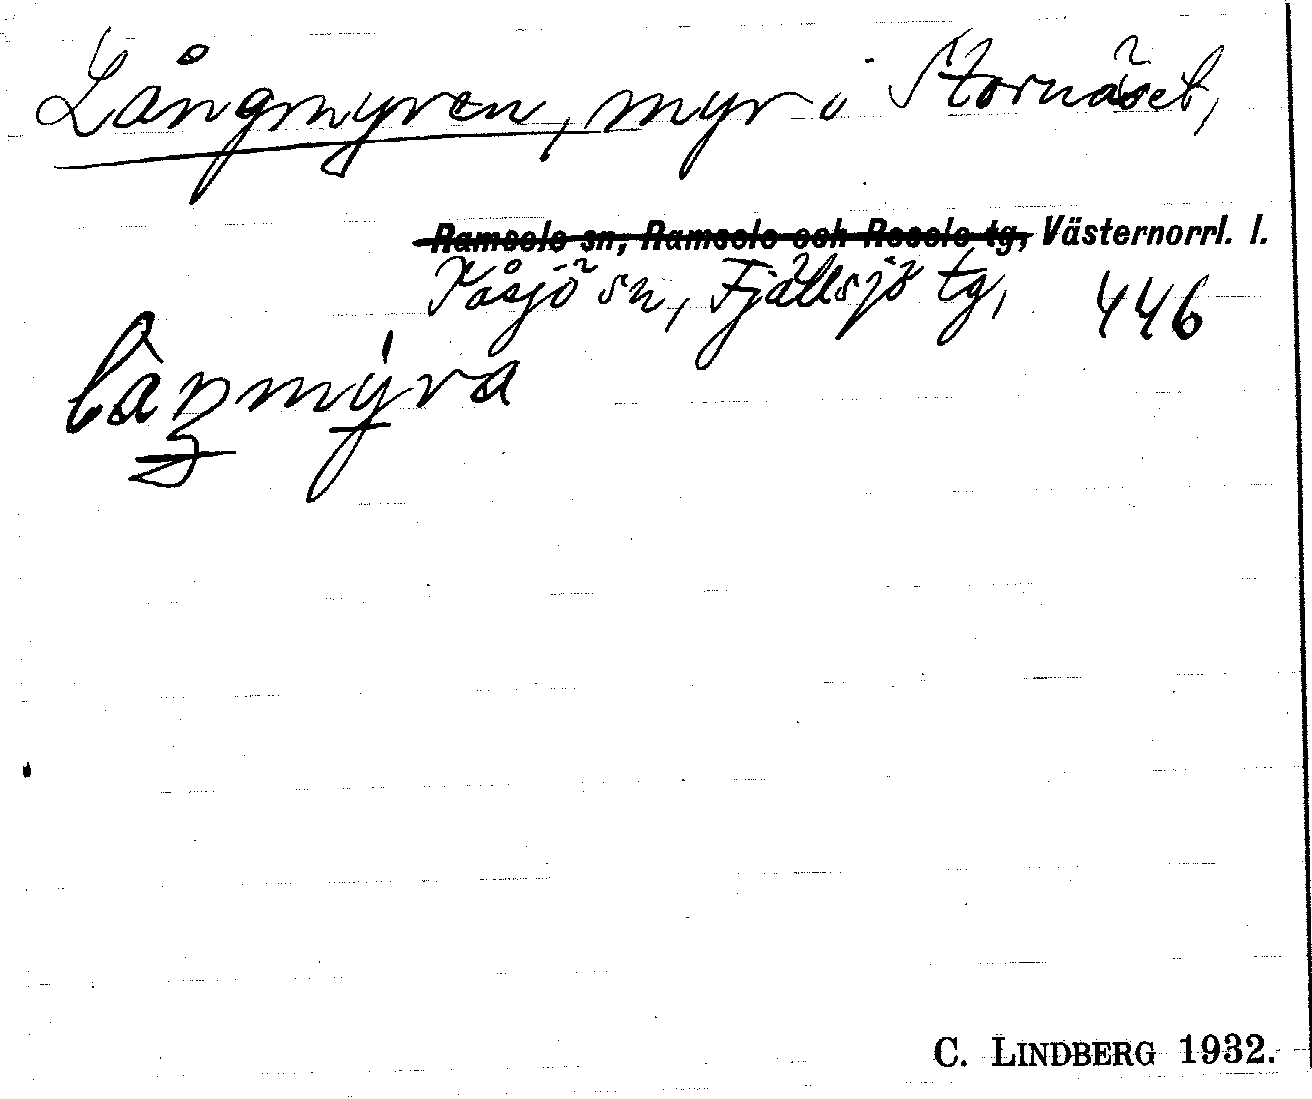 Långmyren, myr i Stornäset,
Ramsele sn, Ramsele och Resele tg, Västernorrl. l.
Tåsjö sn, Fjällsjö tg, 446
C. LINDBERG 1932.